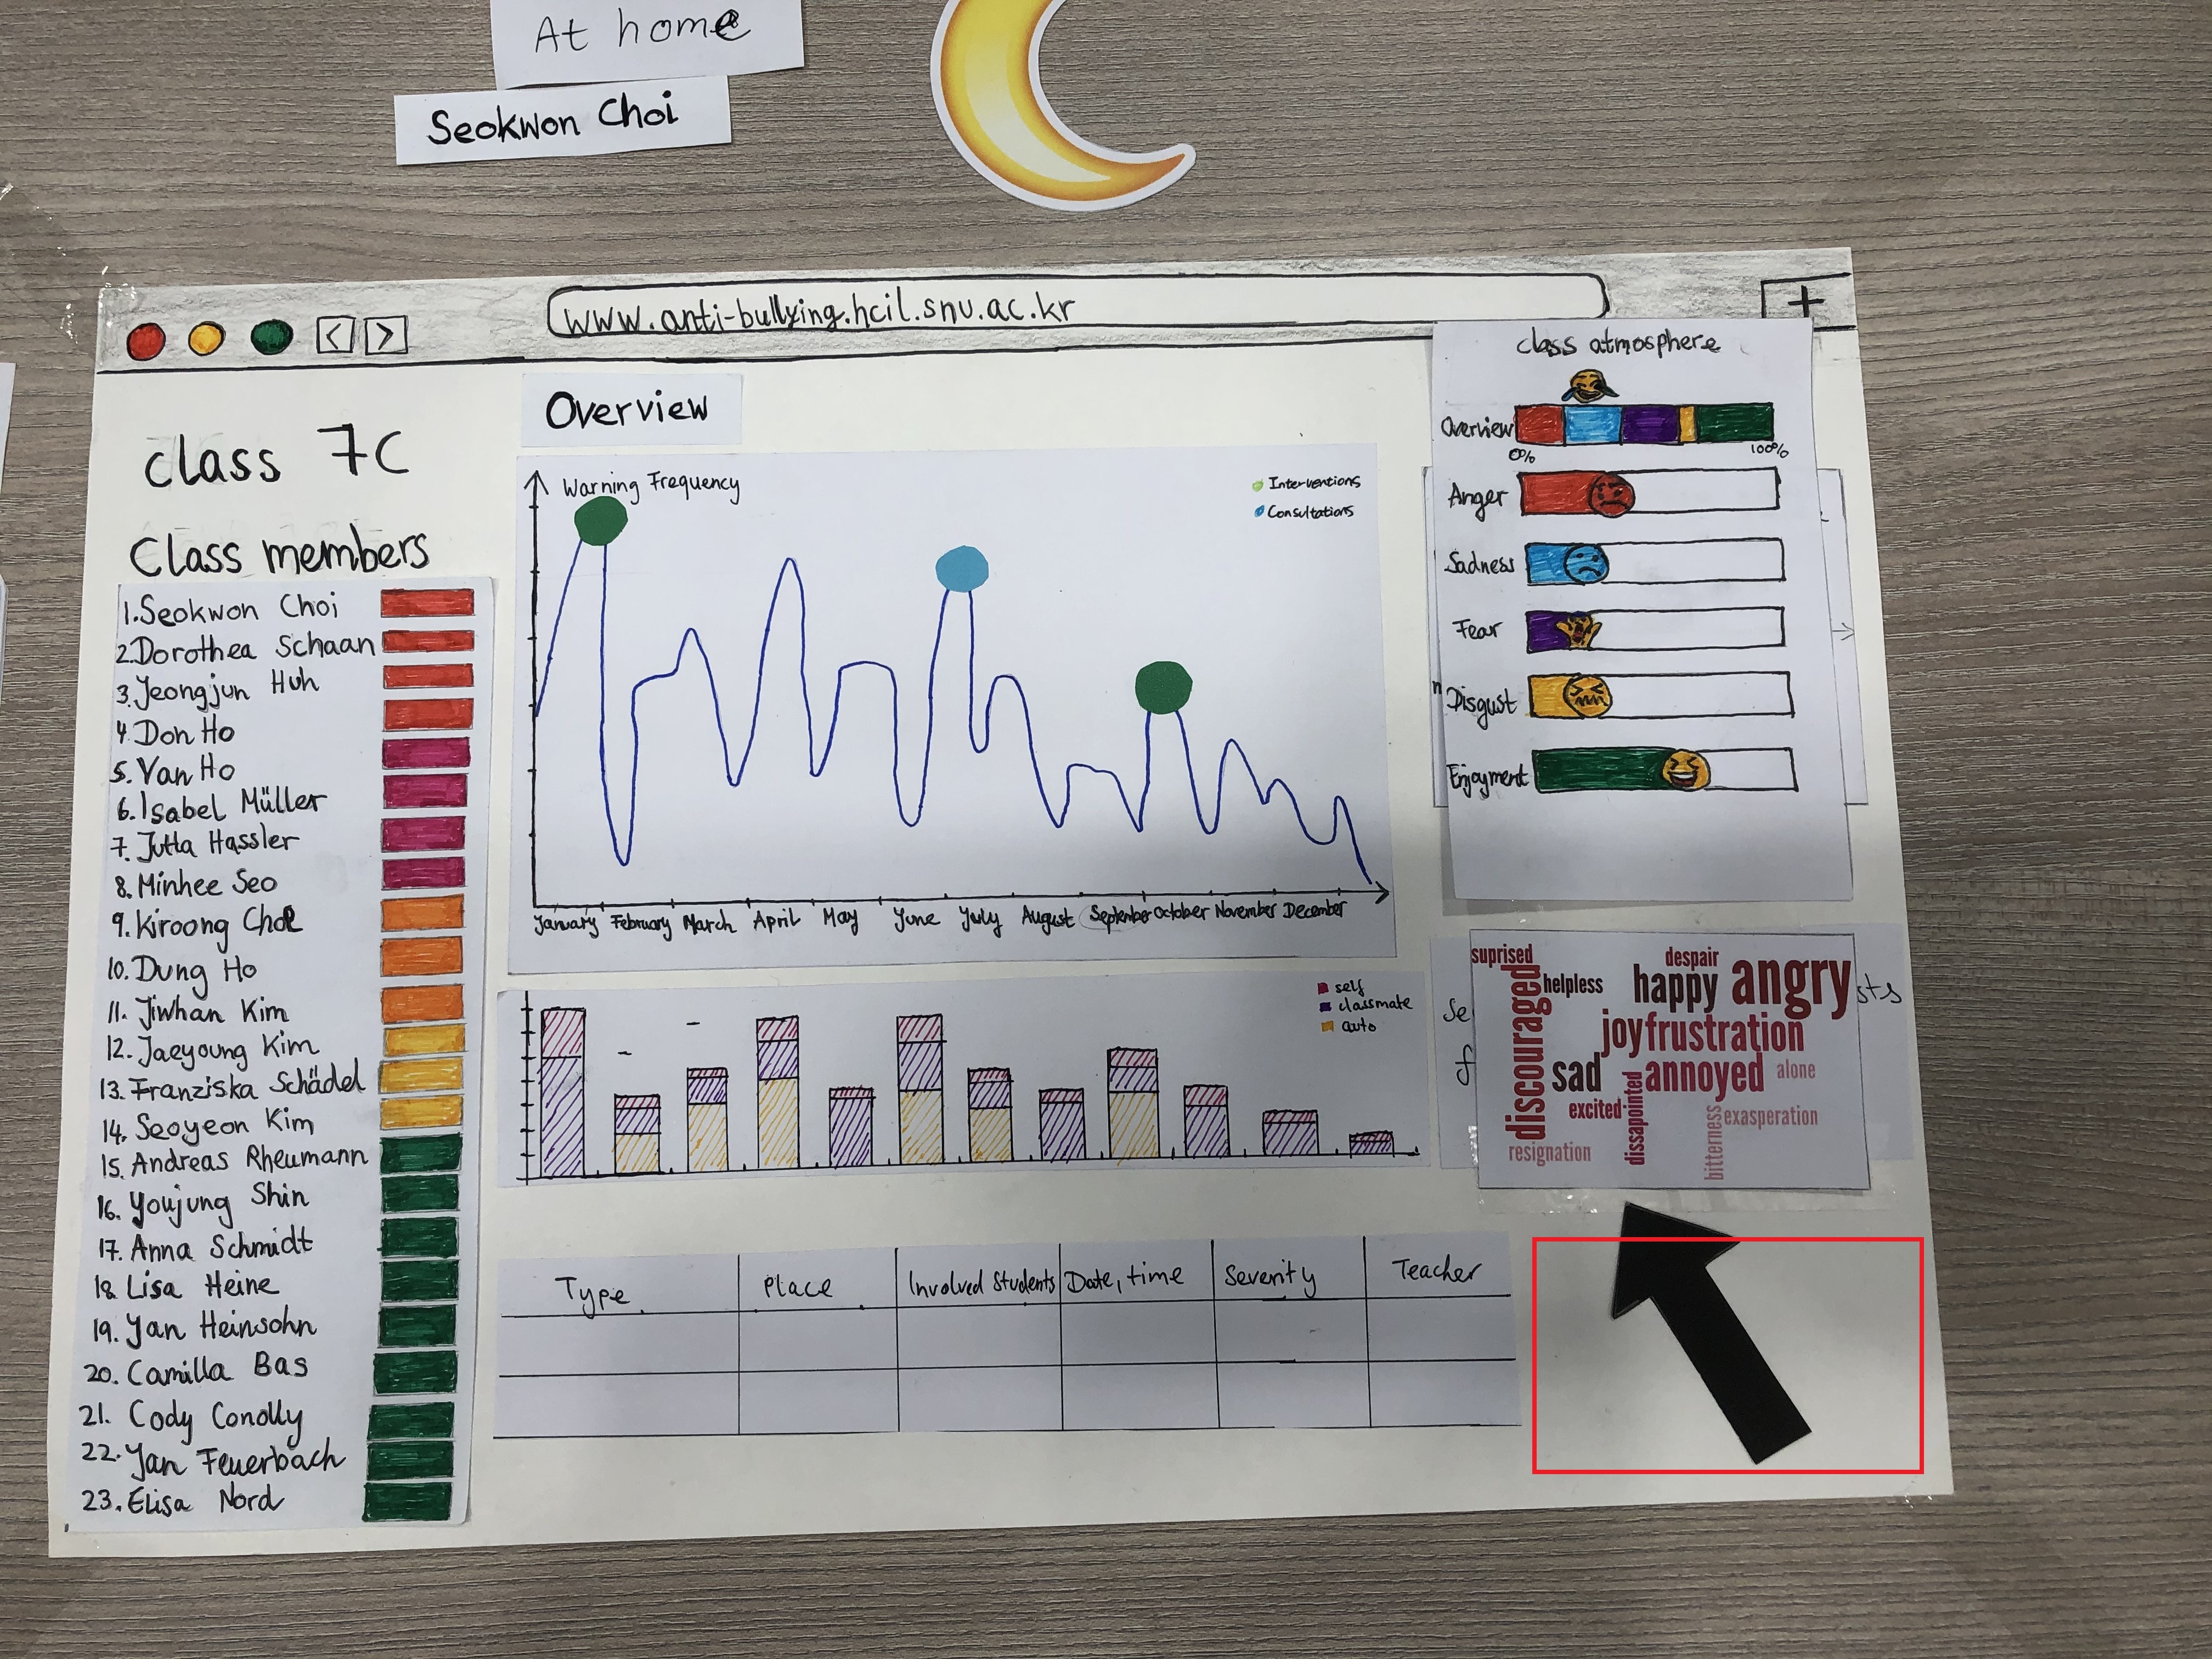 At home
Seokwon Choi
www.anti-bullying.hcil.snu.ac.kr
< >
+
class 7C
Class members
1. Seokwon Choi
2. Dorothea Schaan
3. Jeongjun Huh
4. Don Ho
5. Van Ho
6. Isabel Müller
7. Jutta Hassler
8. Minhee Seo
9. Kiroong Choe
10. Dung Ho
11. Jiwhan Kim
12. Jaeyoung Kim
13. Franziska Schädel
14. Seoyeon Kim
15. Andreas Rheumann
16. Youjung Shin
17. Anna Schmidt
18. Lisa Heine
19. Yan Heinsohn
20. Camilla Bas
21. Cody Conolly
22. Yan Feuerbach
23. Elisa Nord
Overview
Warning Frequency
Interventions
Consultations
January February March April May June July August September October November December
self
classmate
auto
Type Place Involved Students Date, time Severity Teacher
class atmosphere
Overview
0% 100%
Anger
Sadness
Fear
Disgust
Enjoyment
suprised
despair
helpless
happy
angry
discouraged
joy
frustration
sad
annoyed
alone
excited
dissapointed
bitterness
exasperation
resignation